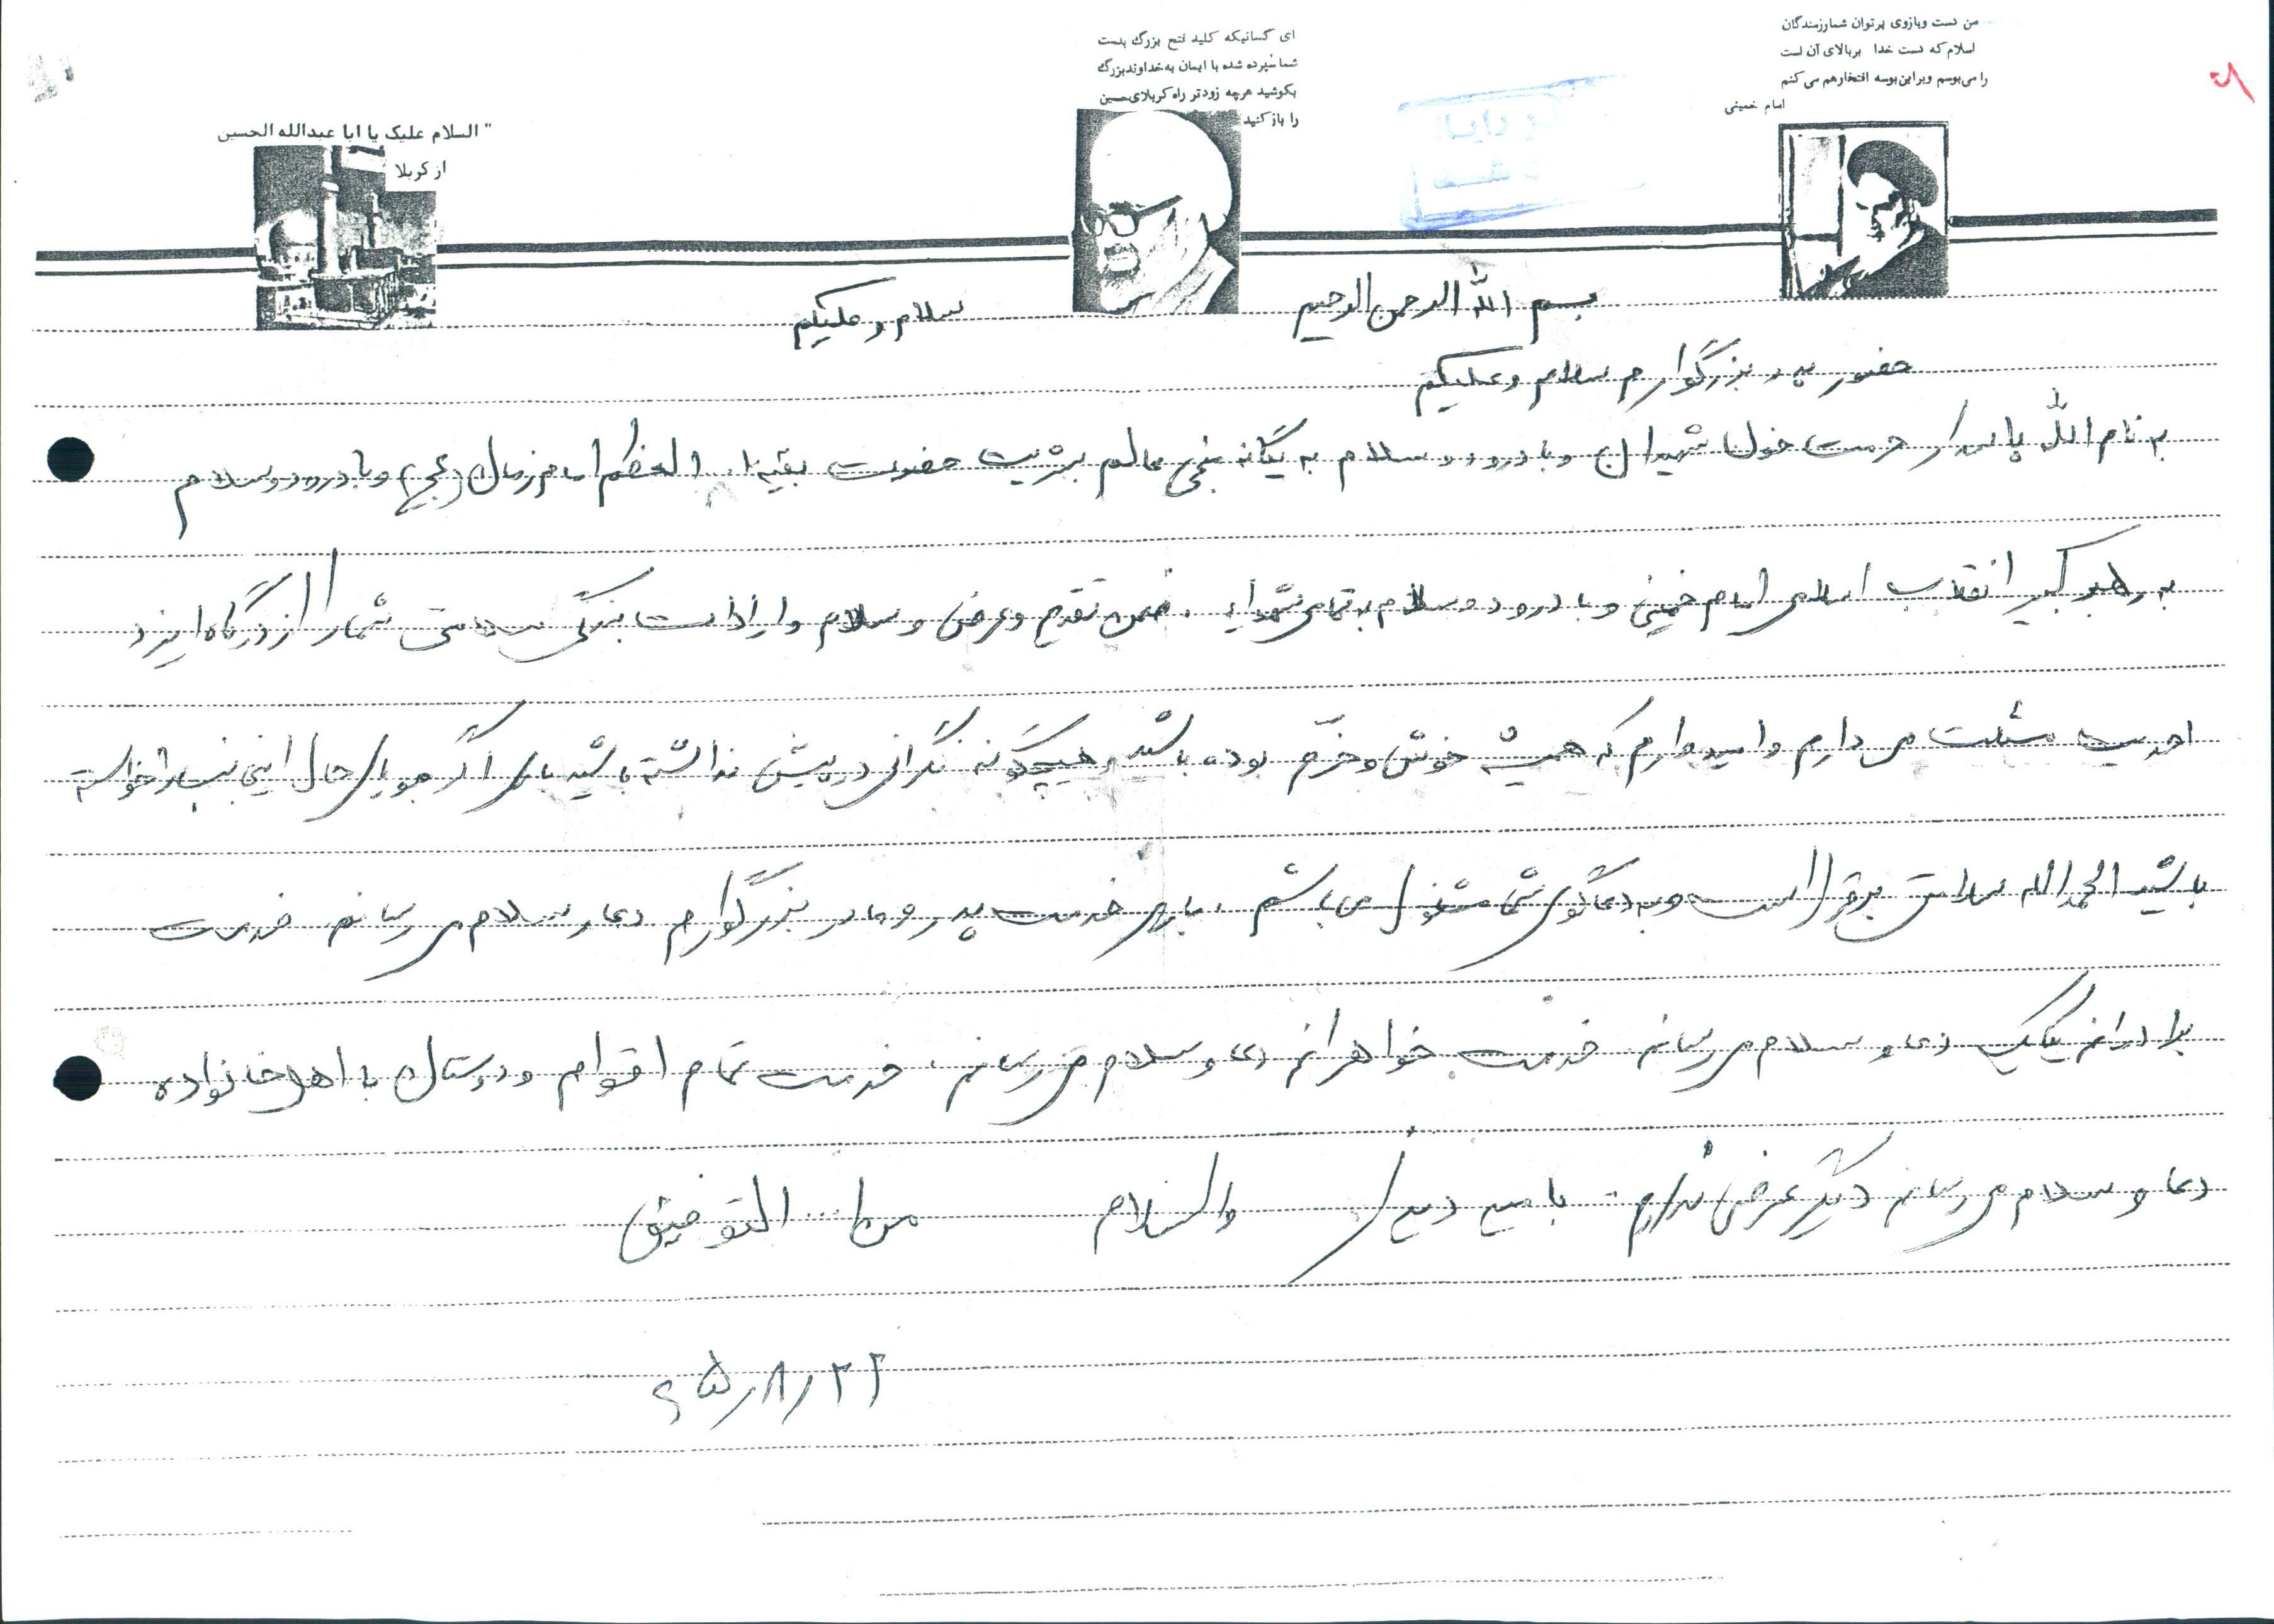 من دست وبازوی پرتوان شمارزمندگان
اسلام که دست خدا بربالای آن است
را می‌بوسم وبراین بوسه افتخارهم می کنم
امام خمینی
ای کسانیکه کلید فتح بزرگ بدست
شما سپرده شده با ایمان به خداوندبزرگ
بکوشید هرچه زودتر راه کربلای حسین
را باز کنید
" السلام علیک یا ابا عبدالله الحسین
از کربلا
بسم الله الرحمن الرحیم سلام وعلیکم
حضور پدر بزرگوارم سلام وعلیکم
به نام الله پاسدار حرمت خون شهیدان و با درود و سلام به یگانه منجی عالم بشریت حضرت بقیه ا.. العظم امام زمان (عج) و با درود و سلام
به رهبر کبیر انقلاب اسلامی امام خمینی و با درود و سلام به تمامی شهداء . ضمن تقدیم و عرض و سلام و ارادت بندگی سلامتی شما را از درگاه ایزد
احدیت مسئلت می دارم و امیدوارم که همیشه خوش و خرم بوده باشید و هیچگونه نگرانی در پیش نداشته باشید باری اگر جویای حال اینجانب را خواسته
باشید الحمد الله سلامتی برقرار است و به دعاگوی شما مشغول می باشم ، باری خدمت پدر و مادر بزرگوارم دعا و سلام می رسانم. خدمت
برادرانم یکایک دعا و سلام می رسانم خدمت خواهرانم دعا و سلام می رسانم ، خدمت تمام اقوام و دوستان با اهل خانواده
دعا و سلام می رسانم دیگر عرضی ندارم . با امید دیدار والسلام من ا... التوفیق
۶۵/۸/۲۲